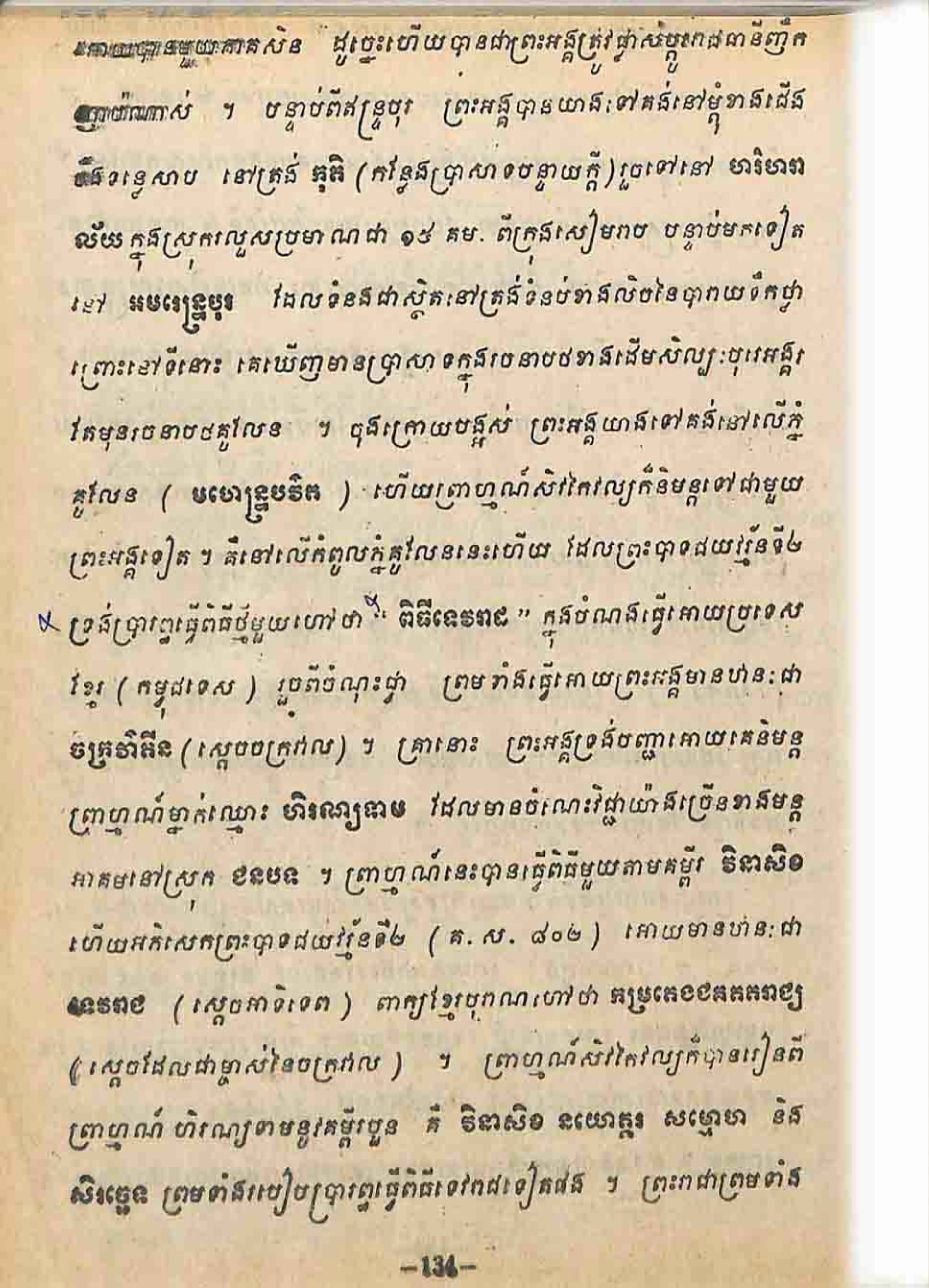 រកាយបានមួយភាគសិន ដូច្នេះហើយបានជាព្រះអង្គត្រូវផ្លាស់ប្ដូររាជធានីញឹក
ញាប់ណាស់ ។ បន្ទាប់ពីឥន្ទ្របុរ ព្រះអង្គបានយាងទៅគង់នៅម្ដុំខាងជើង
បឹងទន្លេសាប នៅត្រង់ កុតិ (កន្លែងប្រាសាទបន្ទាយក្ដី) រួចទៅនៅ ហរិហរា
ល័យ ក្នុងស្រុករលួសប្រមាណជា ១៥ គម. ពីក្រុងសៀមរាប បន្ទាប់មកទៀត
នៅ អមរេន្ទ្របុរ ដែលទំនងជាស្ថិតនៅត្រង់ទំនប់ខាងលិចនៃបារាយទឹកថ្លា
ព្រោះនៅទីនោះ គេឃើញមានប្រាសាទក្នុងរចនាបថខាងដើមសិល្បៈបុរេអង្គរ
តែមុនរចនាបថគូលែន ។ ចុងក្រោយបង្អស់ ព្រះអង្គយាងទៅគង់នៅលើភ្នំ
គូលែន ( មហេន្ទ្របវ៌ត ) ហើយព្រាហ្មណ៍សិវកៃវល្យក៏និមន្តទៅជាមួយ
ព្រះអង្គទៀត ។ គឺនៅលើកំពូលភ្នំគូលែននេះហើយ ដែលព្រះបាទជយវរ្ម័នទី២
ទ្រង់ប្រារព្ធធ្វើពិធីថ្មីមួយហៅថា “ ពិធីទេវរាជ ” ក្នុងបំណងធ្វើអោយប្រទេស
ខ្មែរ ( កម្វុជទេស ) រួចពីចំណុះជ្វា ព្រមទាំងធ្វើអោយព្រះអង្គមានឋានៈជា
ចក្រវ៌ាតិន (ស្ដេចចក្រវាល) ។ គ្រានោះ ព្រះអង្គទ្រង់បញ្ជាអោយគេនិមន្ត
ព្រាហ្មណ៍ម្នាក់ឈ្មោះ ហិរណ្យទាម ដែលមានចំណេះវិជ្ជាយ៉ាងច្រើនខាងមន្ត
អាគមនៅស្រុក ជនបទ ។ ព្រាហ្មណ៍នេះបានធ្វើពិធីមួយតាមគម្ពីរ វិនាសិខ
ហើយអភិសេកព្រះបាទជយវរ្ម័នទី២ ( គ. ស. ៨០២ ) អោយមានឋានៈជា
ទេវរាជ ( ស្ដេចអាទិទេព ) ពាក្យខ្មែរបុរាណហៅថា កម្រតេងជគតតរាជ្យ
( ស្ដេចដែលជាម្ចាស់នៃចក្រវាល ) ។ ព្រាហ្មណ៍សិវកៃវល្យក៏បានរៀនពី
ព្រាហ្មណ៍ ហិរណ្យទាមនូវគម្ពីរបួន គឺ វិនាសិខ នយោត្តរ សម្មោហ និង
សិរច្ឆេទ ព្រមទាំងរបៀបប្រារព្ធធ្វើពិធីទេវរាជទៀតផង ។ ព្រះរាជាព្រមទាំង
—134—